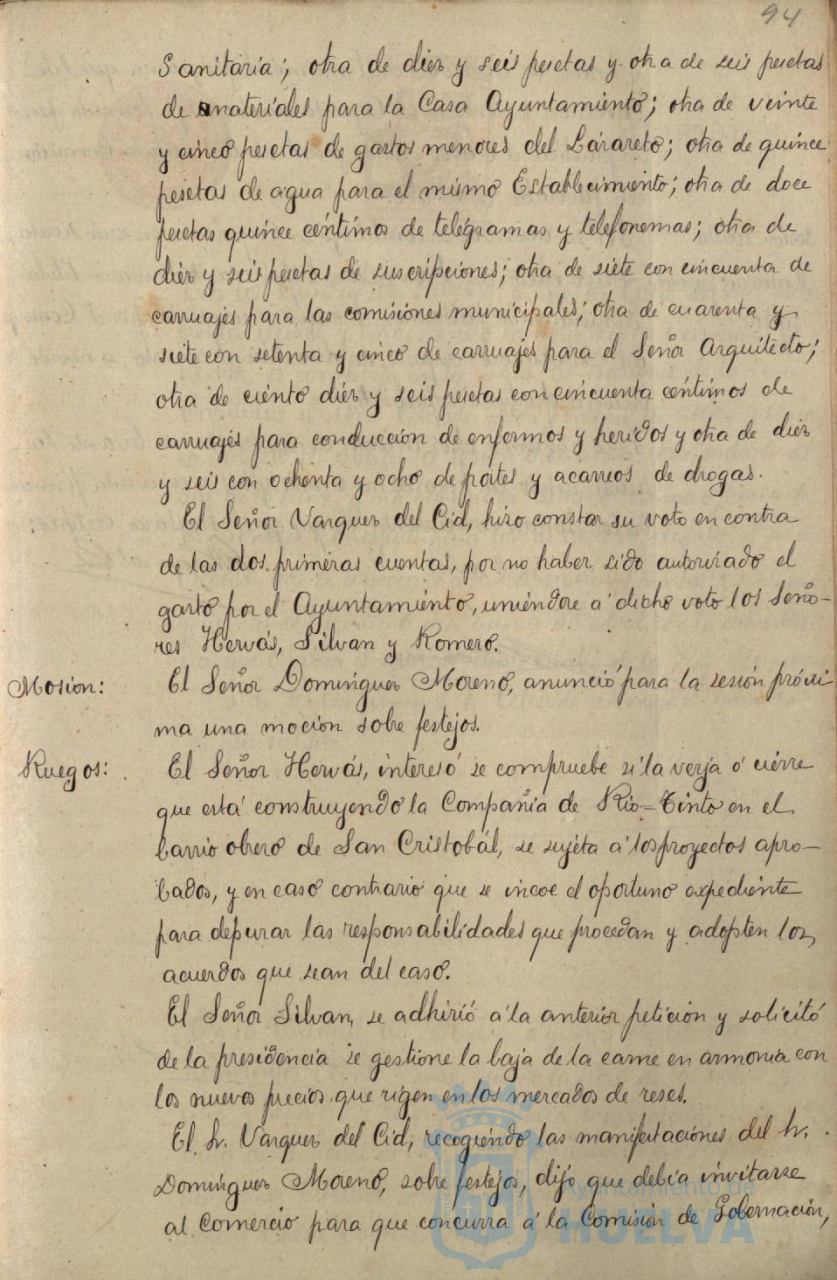 94
Sanitaria; otra de diez y seis pesetas y otra de seis pesetas
de materiales para la Casa Ayuntamiento; otra de veinte
y cinco pesetas de gastos menores del Lázareto; otra de quince
pesetas de agua para el mismo Establecimiento; otra de doce
pesetas quince céntimos de telégramas y telefonemas; otra de
diez y seis pesetas de suscripciones; otra de siete con cincuenta de
carruajes para las comisiones municipales; otra de cuarenta y
siete con setenta y cinco de carruajes para el Señor Arquitecto;
otra de ciento diez y seis pesetas con cincuenta céntimos de
carruajes para conducción de enfermos y heridos y otra de diez
y seis con ochenta y ocho de portes y acarreos de drogas.
El Señor Vazquez del Cid, hizo constar su voto en contra
de las dos primeras cuentas, por no haber sido autorizado el
gasto por el Ayuntamiento, uniéndose a dicho voto los Seño-
res Hervás, Silvan y Romero.
Mosion: El Señor Dominguez Moreno, anunció para la sesión próxi
ma una mocion sobre festejos.
Ruegos: El Señor Hervás, interesó se compruebe si la verja ó cierre
que está construyendo la Compañia de Rio-Tinto en el
barrio obrero de San Cristobál, se sujeta á los proyectos apro-
bados, y en caso contrario que se incoe el oportuno expediente
para depurar las responsabilidades que procedan y adopten los
acuerdos que sean del caso.
El Señor Silvan, se adhirió á la anterior petición y solicitó
de la presidencia se gestione la baja de la carne en armonia con
los nuevos precios que rigen en los mercados de reses.
El Sr. Vazquez del Cid, recogiendo las manifestaciones del Sr.
Domínguez Moreno, sobre festejos, dijo que debía invitarse
al Comercio para que concurra á la Comisión de Gobernación,
Ayuntamiento de
HUELVA